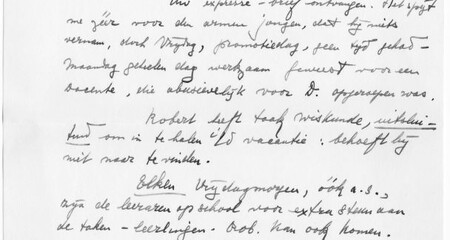 Uw expresse-brief ontvangen. Het spijt
me zéér voor den armen jongen, dat hij niets
vernam, doch Vrijdag, promotiedag, geen tijd gehad-
Maandag geheelen dag werkzaam geweest voor een
docente, die abusievelijk voor D. opgeroepen was.
Robert heeft taak wiskunde, uitslui-
tend om in te halen i/d vacantie : behoeft hij
niet naar te vinden.
Elken Vrijdagmorgen, óók a.s.,
zijn de leeraren op school voor extra steun aan
de taken-leerlingen. Rob. kan ook komen.